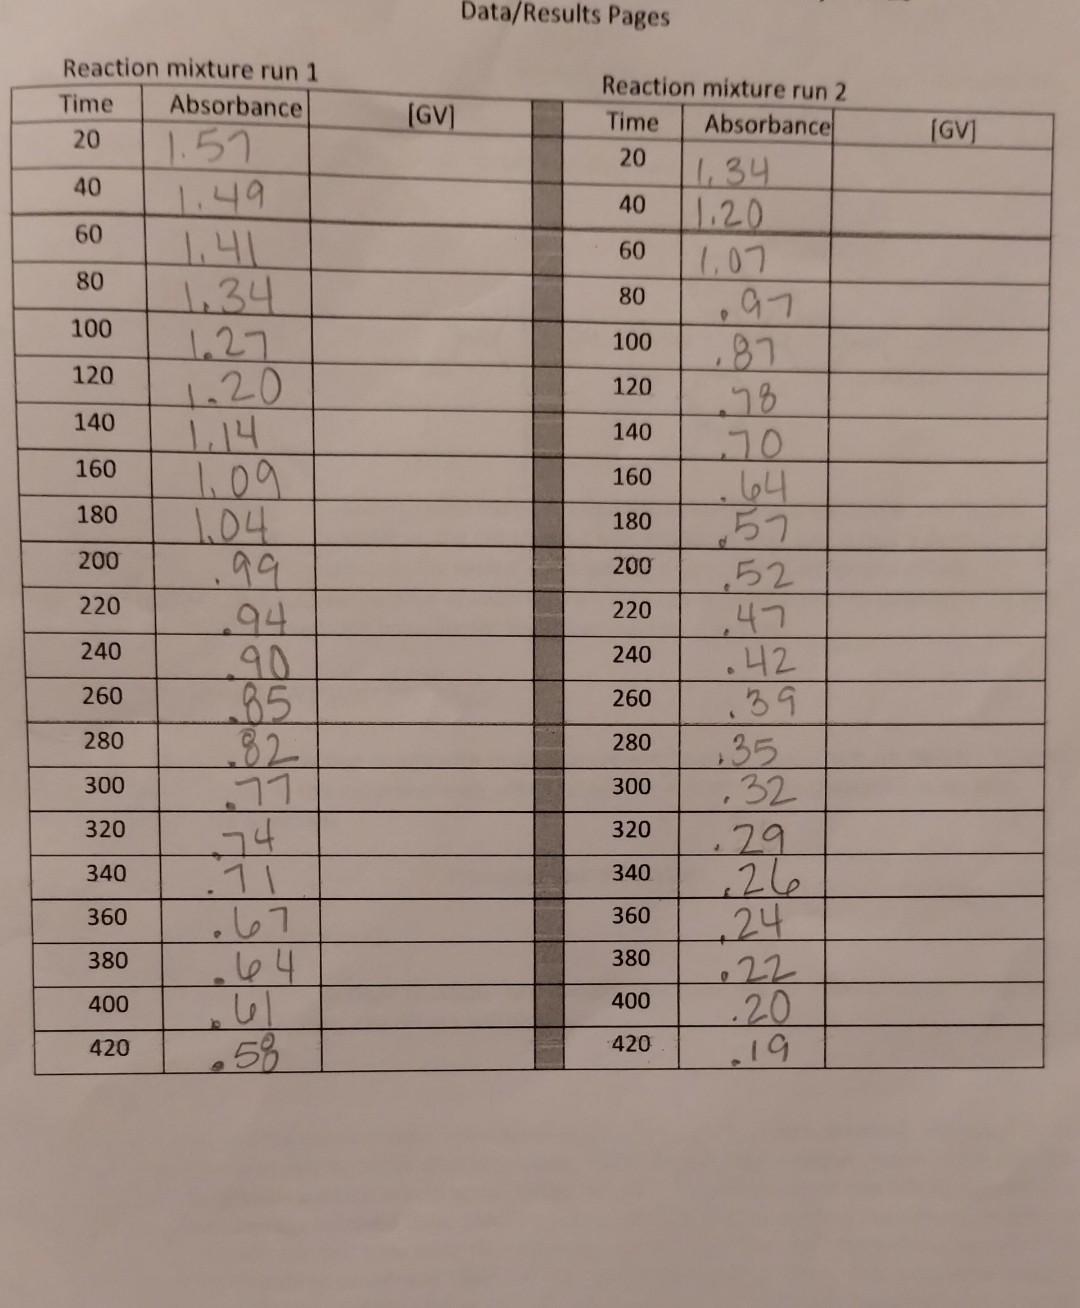 Data/Results Pages
Reaction mixture run 1
Reaction mixture run 2
Time Absorbance [GV] Time Absorbance [GV]
20 1.57 20 1.34
40 1.49 40 1.20
60 1.41 60 1.07
80 1.34 80 .97
100 1.27 100 .87
120 1.20 120 .78
140 1.14 140 .70
160 1.09 160 .64
180 1.04 180 .57
200 .99 200 .52
220 .94 220 .47
240 .90 240 .42
260 .85 260 .39
280 .82 280 .35
300 .77 300 .32
320 .74 320 .29
340 .71 340 .26
360 .67 360 .24
380 .64 380 .22
400 .61 400 .20
420 .58 420 .19